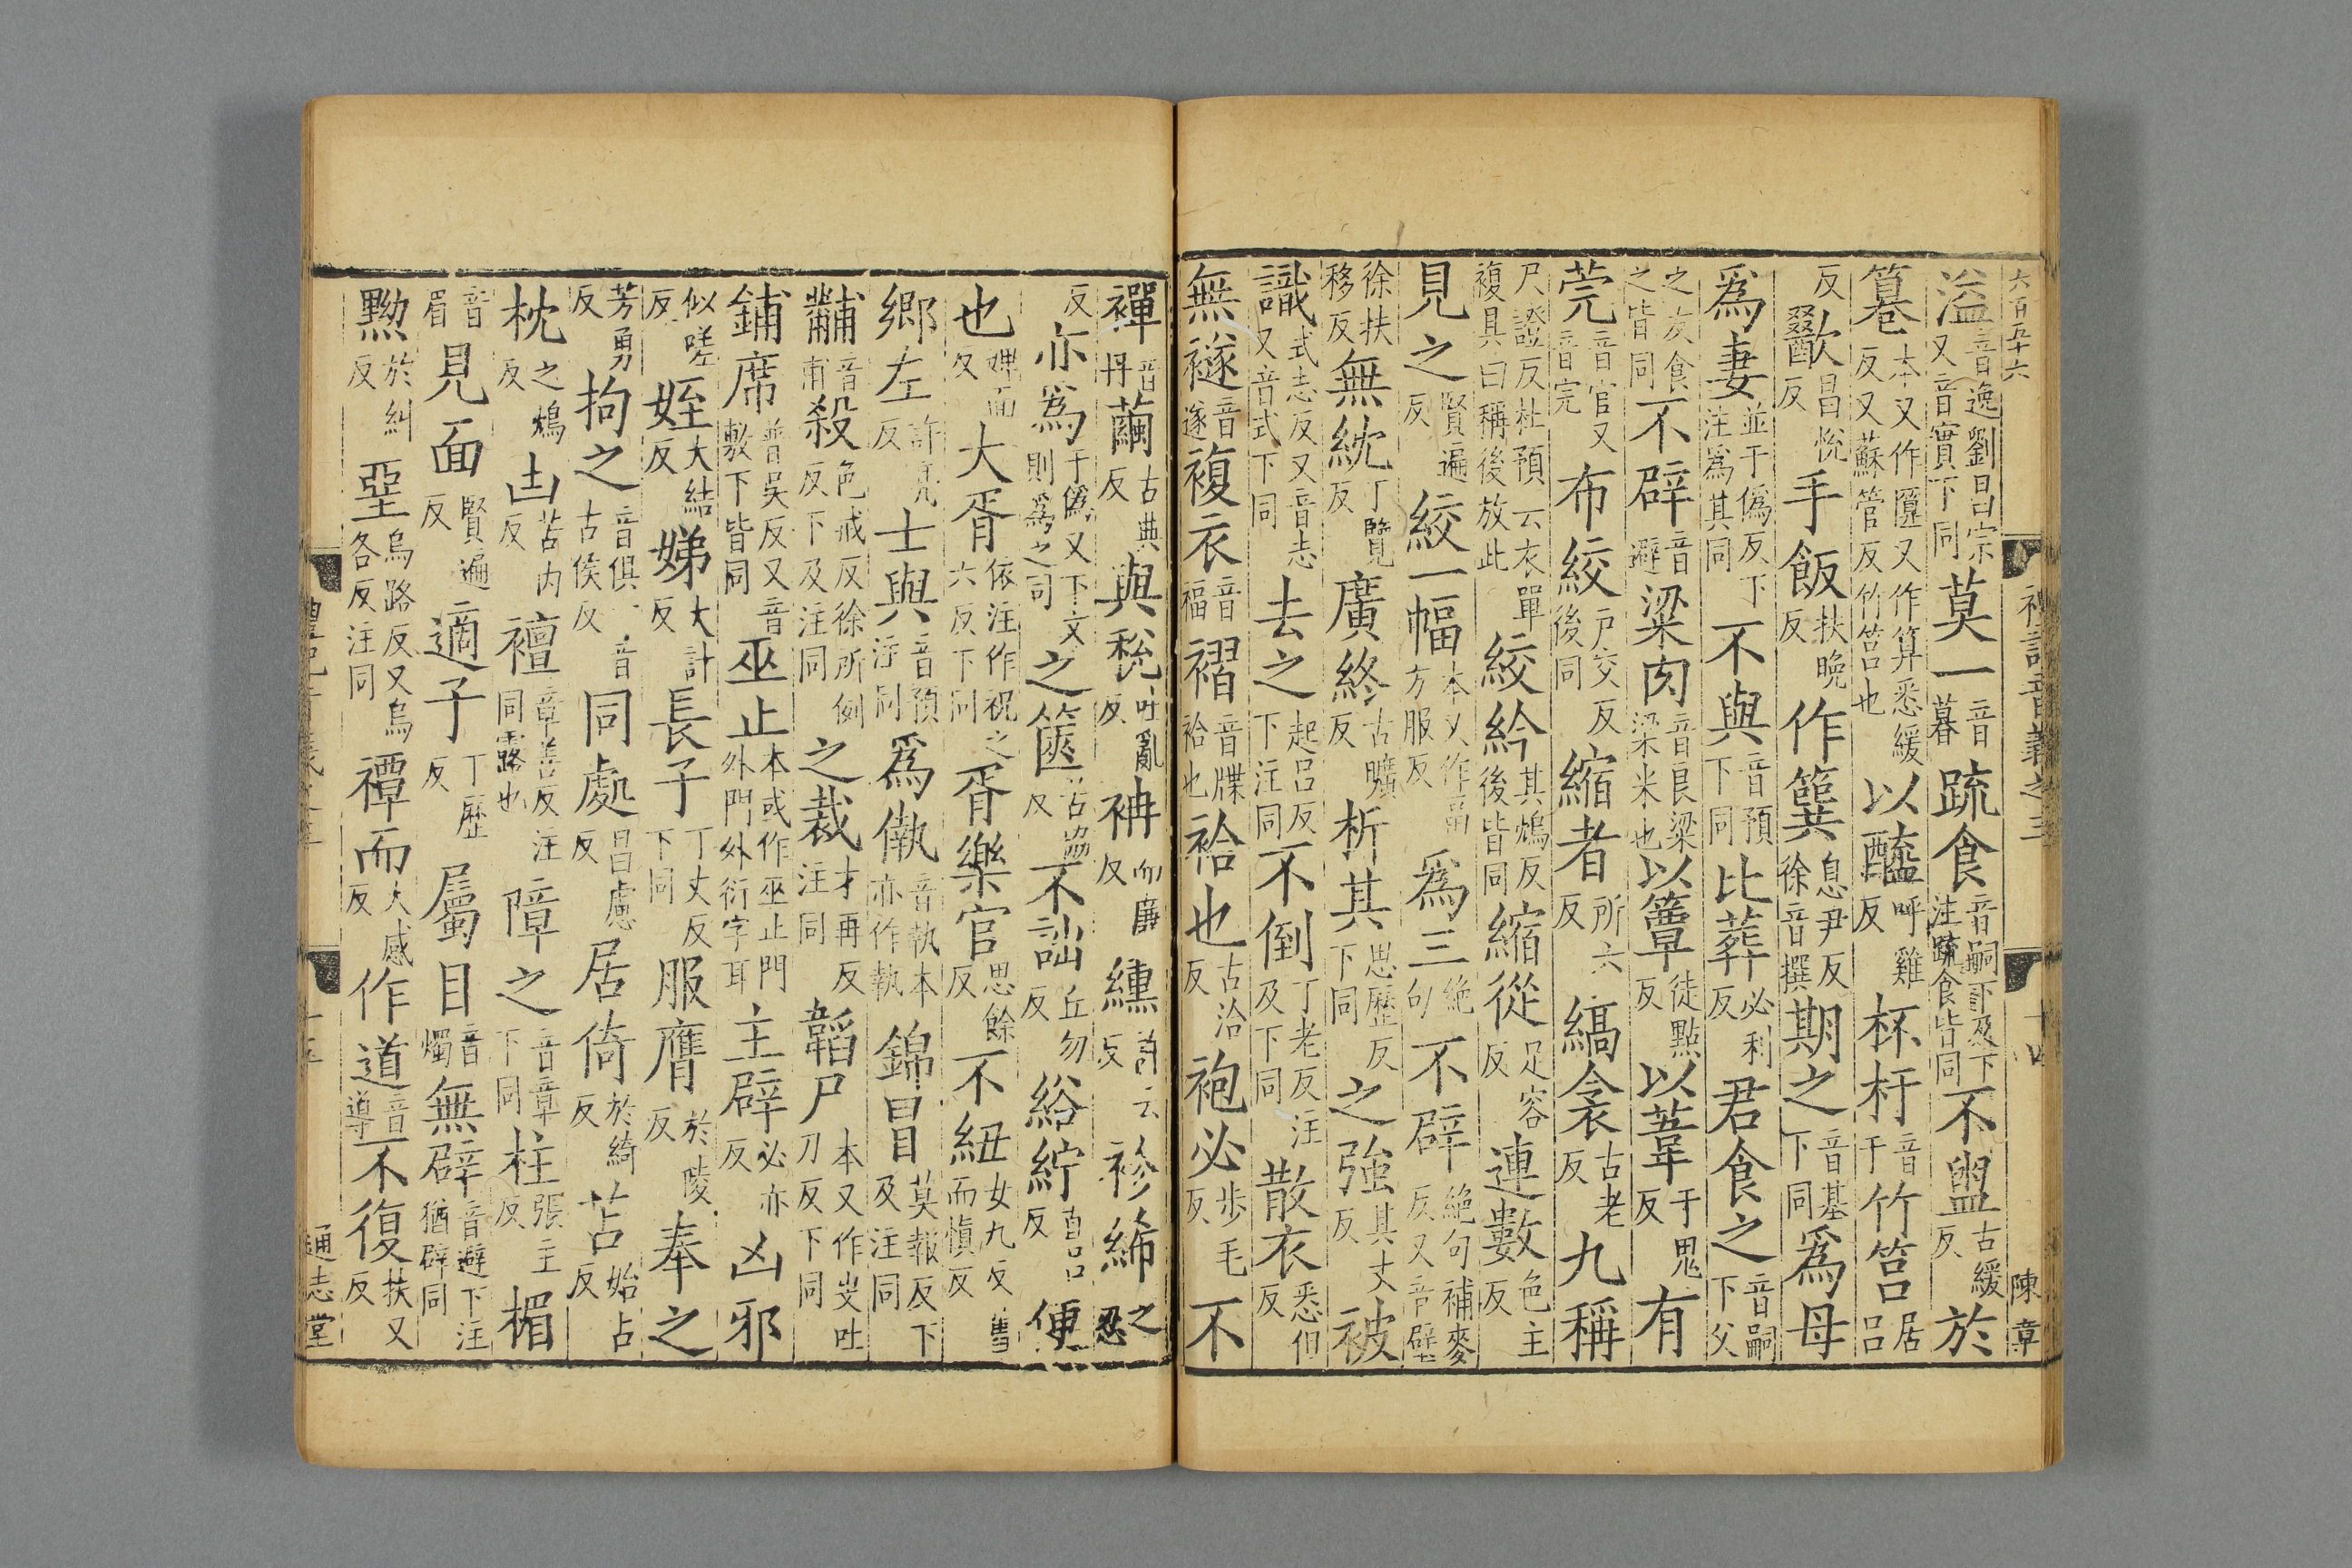 六百五十六
禮記音義之三 十四 陳章
溢音逸劉昌宗又音實下同莫一音暮疏食音嗣下及下注疏食皆同不盥古緩反於
篹本又作匴又作算悉緩反又蘇管反竹筥也以醯呼雞反杯杅音于竹筥居呂
反歠昌悅反手飯扶晚反作簨息尹反徐音撰期之音基下同爲母
爲妻並于僞反下注爲其同不與音預下同比葬必利反君食之音嗣下父
之友食之皆同不辟音避粱肉音良粱粱米也以簟徒點反以葦于鬼反有
莞音官又音完布絞戶交反後同縮者所六反縞衾古老反九稱
尺證反杜預云衣單複具曰稱後放此絞紟其鴆反後皆同縮從足容反連數色主反
見之賢遍反絞一幅本又作畐方服反爲三絶句不辟絶句補麥反又音璧
徐扶移反無紞丁覽反廣終古曠反析其思歷反下同之強其丈反被
識式志反又音志又音式下同去之起呂反下注同不倒丁老反注及下同散衣悉但反
無襚音遂複衣音福褶音牒袷也袷也古洽反袍必步毛反不
襌音丹繭古典反與稅吐亂反袡而廉反纁許云反袗絺之忍
反亦爲于僞反又下文則爲之同之篋苦協反不詘丘勿反綌紵直呂反便
也婢面反大胥依注作祝之六反下同胥樂官思餘反不紐女九反舊而愼反
鄉左許亮反士與音預注同爲僌音執本亦作執錦冒莫報反下及注同
黼音甫殺色戒反徐所例反下及注同之裁才再反注同韜尸本又作𡬶吐刀反下同
鋪席普吳反又音敷下皆同巫止本或作巫止門外門外衍字耳主辟必亦反凶邪
似嗟反姪大結反娣大計反長子丁丈反下同服膺於陵反奉之
芳勇反拘之音俱一音古侯反同處昌慮反居倚於綺反苫始占反
枕之鴆反凷苦內反襢章善反注同露也障之音章下同柱張主反楣
音眉見面賢遍反適子丁歷反屬目音燭無辟音避下注猶辟同
黝於糾反堊烏路反又烏各反注同禫而大感反作道音導不復扶又反
禮記音義之三 十五 通志堂